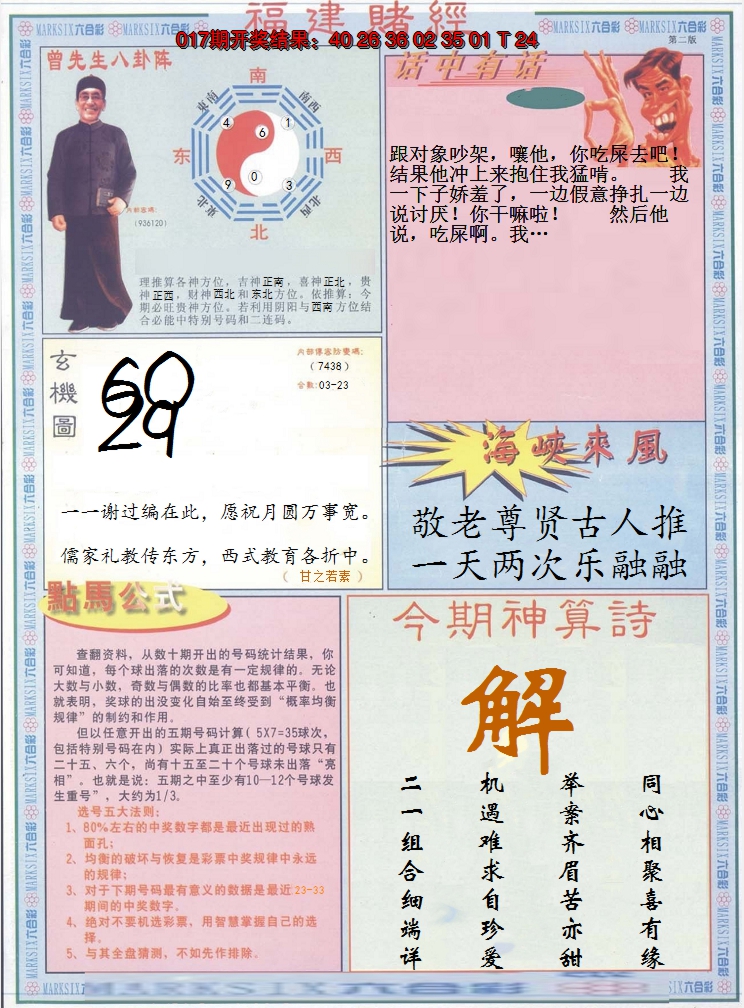 福建賭經
017期开奖结果：40 26 36 02 35 01 T 24
MARKSIX六合彩
第二版
曾先生八卦阵
南
东南
南西
4
6
1
东
西
9
0
3
东北
北西
北
内部密碼:
(936120)
理推算各神方位，吉神正南，喜神正北，贵
神正西，财神西北和东北方位。依推算：今
期必旺贵神方位。若利用阴阳与西南方位结
合必能中特别号码和二连码。
话中有话
跟对象吵架，嚷他，你吃屎去吧！
结果他冲上来抱住我猛啃。 我
一下子娇羞了，一边假意挣扎一边
说讨厌！你干嘛啦！ 然后他
说，吃屎啊。我…
玄機圖
内部傳密診壹碼:
(7438)
合数:03-23
60
29
一一谢过编在此，愿祝月圆万事宽。
儒家礼教传东方，西式教育各折中。
（ 甘之若素 ）
海峽來風
敬老尊贤古人推
一天两次乐融融
點馬公式
查翻资料，从数十期开出的号码统计结果，你
可知道，每个球出落的次数是有一定规律的。无论
大数与小数，奇数与偶数的比率也都基本平衡。也
就表明，奖球的出没变化自始至终受到“概率均衡
规律”的制约和作用。
但以任意开出的五期号码计算( 5X7=35球次，
包括特别号码在内) 实际上真正出落过的号球只有
二十五、六个，尚有十五至二十个号球未出落“亮
相”。也就是说：五期之中至少有10—12个号球发
生重号”，大约为1/3。
选号五大法则：
1、80%左右的中奖数字都是最近出现过的熟
面孔；
2、均衡的破坏与恢复是彩票中奖规律中永远
的规律；
3、对于下期号码最有意义的数据是最近23-33
期间的中奖数字。
4、绝对不要机选彩票，用智慧掌握自己的选
择。
5、与其全盘猜测，不如先作排除。
今期神算詩
解
同心相聚喜有缘
举案齐眉苦亦甜
机遇难求自珍爱
二一组合细端详